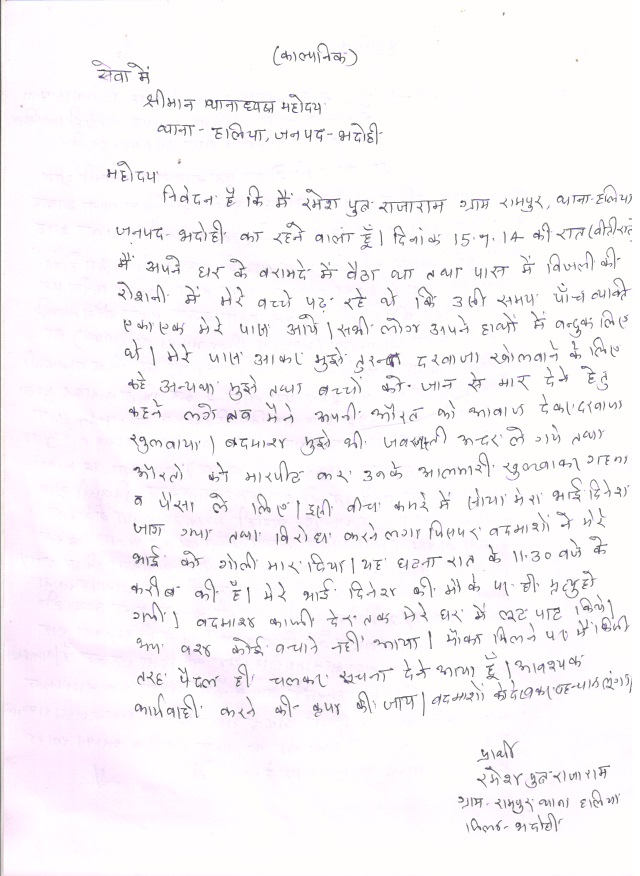 (काल्पनिक)
सेवा में
श्रीमान थानाध्यक्ष महोदय
थाना - हालिया, जनपद - भदोही
महोदय
निवेदन है कि मैं रमेश पुत्र राजाराम ग्राम रामपुर, थाना हालिया
जनपद - भदोही का रहने वाला हूँ। दिनांक 15.9.14 की रात (बीती रात)
मैं अपने घर के बरामदे में बैठा था तथा पास में बिजली की
रोशनी में मेरे बच्चे पढ़ रहे थे कि उसी समय पाँच व्यक्ति
एकाएक मेरे पास आये। सभी लोग अपने हाथों में बन्दुक लिए
थे। मेरे पास आकर मुझे तुरन्त दरवाजा खोलवाने के लिए
कहे अन्यथा मुझे तथा बच्चों को जान से मार देने हेतु
कहने लगे तब मैंने अपनी औरत को आवाज देकर दरवाजा
खुलवाया। बदमाश मुझे भी जबरदस्ती अन्दर ले गये तथा
औरतों को मारपीट कर उनके आलमारी खुलवाकर गहना
व पैसा ले लिए। इसी बीच कमरे में सोया मेरा भाई दिनेश
जाग गया तथा विरोध करने लगा जिसपर बदमाशों ने मेरे
भाई को गोली मार दिया। यह घटना रात के 11.30 बजे के
करीब की है। मेरे भाई दिनेश की मौके पर ही मृत्यु हो
गयी। बदमाश काफी देर तक मेरे घर में लूट पाट किये।
भय वश कोई बचाने नहीं आया। मौका मिलने पर मैं किसी
तरह पैदल ही चलकर सूचना देने आया हूँ। आवश्यक
कार्यवाही करने की कृपा की जाय। बदमाशों को देखकर पहचान लूंगा।
प्रार्थी
रमेश पुत्र राजाराम
ग्राम - रामपुर थाना हालिया
जिला - भदोही